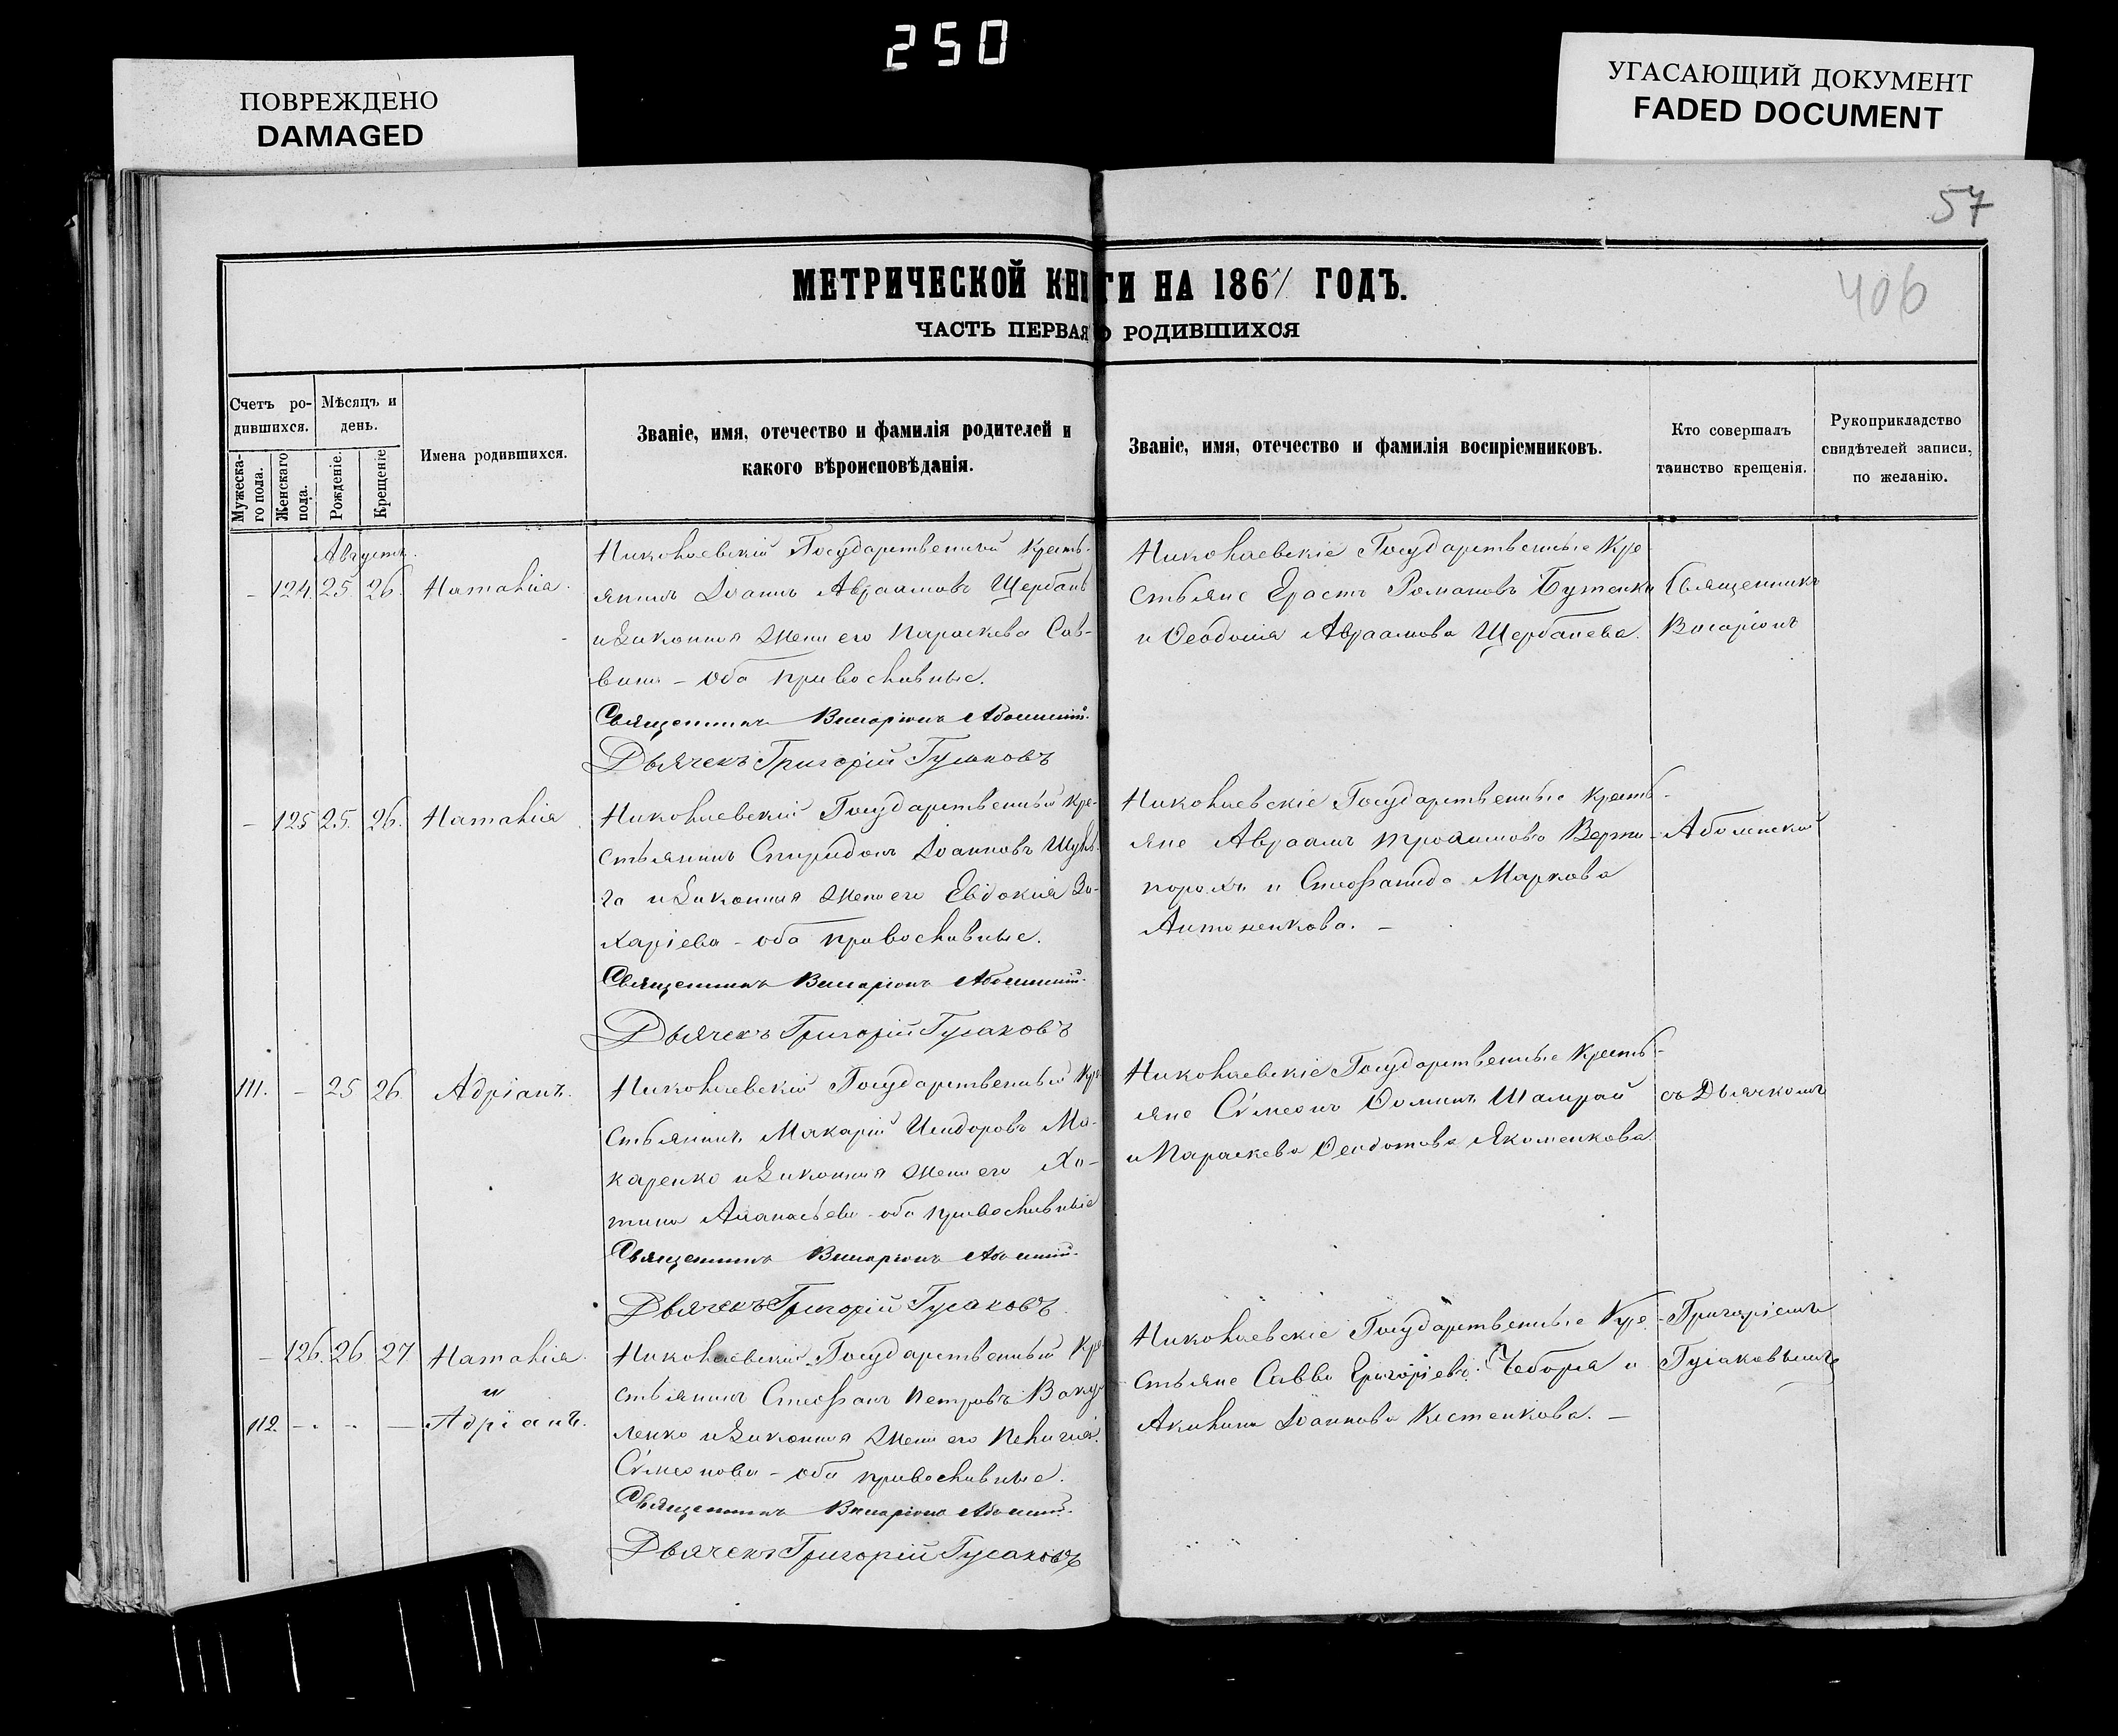 250
ПОВРЕЖДЕНО
DAMAGED
УГАСАЮЩИЙ ДОКУМЕНТ
FADED DOCUMENT
57
406
МЕТРИЧЕСКОЙ КНИГИ НА 1867 ГОДЪ.
ЧАСТЬ ПЕРВАЯ О РОДИВШИХСЯ
Счетъ ро-
дившихся.
Мужеска-
го пола.
Женскаго
пола.
Мѣсяцъ и
день.
Рожденіе.
Крещеніе
Имена родившихся.
Званіе, имя, отечество и фамилія родителей и
какого вѣроисповѣданія.
Званіе, имя, отечество и фамилія воспріемниковъ.
Кто совершалъ
таинство крещенія.
Рукоприкладство
свидѣтелей записи,
по желанію.
Августъ.
- 124. 25. 26. Наталія.
Николаевскій Государственный Кресть-
янинъ Іоаннъ Авраамовъ Щербань
и законная жена его Параскева Сав-
вина - оба православные.
Священникъ Виссаріонъ
Дьячекъ Григорій Гусаковъ
Николаевскіе Государственные Кре-
стьяне Ерастъ Романовъ Бутенко
и Ѳеодосія Авраамова Щербанева.
Священникъ
Висаріонъ
- 125 25. 26. Наталія
Николаевскій Государственный Кре-
стьянинъ Спиридонъ Іоанновъ Шуль-
га и законная жена его Евдокія За-
харіева - оба православные.
Священникъ Виссаріонъ
Дьячекъ Григорій Гусаковъ
Николаевскіе Государственные Кресть-
яне Авраамъ
и Стефанида Маркова
Антоненкова. -
111. - 25 26 Адріанъ.
Николаевскій Государственный Кре-
стьянинъ Макарій Исидоровъ Ма-
каренко и законная жена его Ха-
тина Аѳанасьева - оба православные
Священникъ Виссаріонъ
Дьячекъ Григорій Гусаковъ
Николаевскіе Государственные Кресть-
яне Сѵмеонъ Ѳоминъ Шамрай
и Параскева Ѳеодотова Якоменкова
съ Дьячкомъ
- 126. 26. 27. Наталія
и
112. - - - Адріанъ.
Николаевскій Государственный Кре-
стьянинъ Стефанъ Петровъ Ваку-
ленко и законная жена его Пелагія
Сѵмеонова - оба православные.
Священникъ Виссаріонъ
Дьячекъ Григорій Гусаковъ
Николаевскіе Государственные Кре-
стьяне Савва Григоріевъ и
Акилина Іоаннова Костенкова. -
Григоріемъ
Гусаковымъ